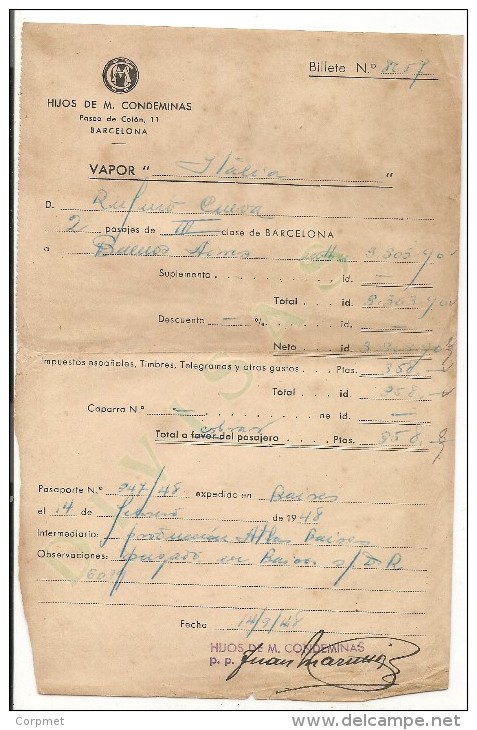 Billete N.º
HIJOS DE M. CONDEMINAS
Paseo de Colón, 11
BARCELONA
VAPOR " Italia "
D. Rufino Cueva
2 pasajes de III clase de BARCELONA
a Buenos Aires 3.303.40
Suplemento id. —
Total id. 3.303.40
Descuento — %. id. —
Neto id.
Impuestos españoles, Timbres, Telegramas y otros gastos Ptas. 358
Total id. 358
Caparra N.º — de id. —
cobrar
Total a favor del pasajero Ptas. 358
Pasaporte N.º 947/48 expedido en Baires
el 14 de febrero de 1948
Intermediario: Atlas Baires
Observaciones: pagado en Baires s/ D R
Fecha 14/9/48
HIJOS DE M. CONDEMINAS
p. p. Juan
DIVISAS
Copyright : corpmet @ delcampe.net